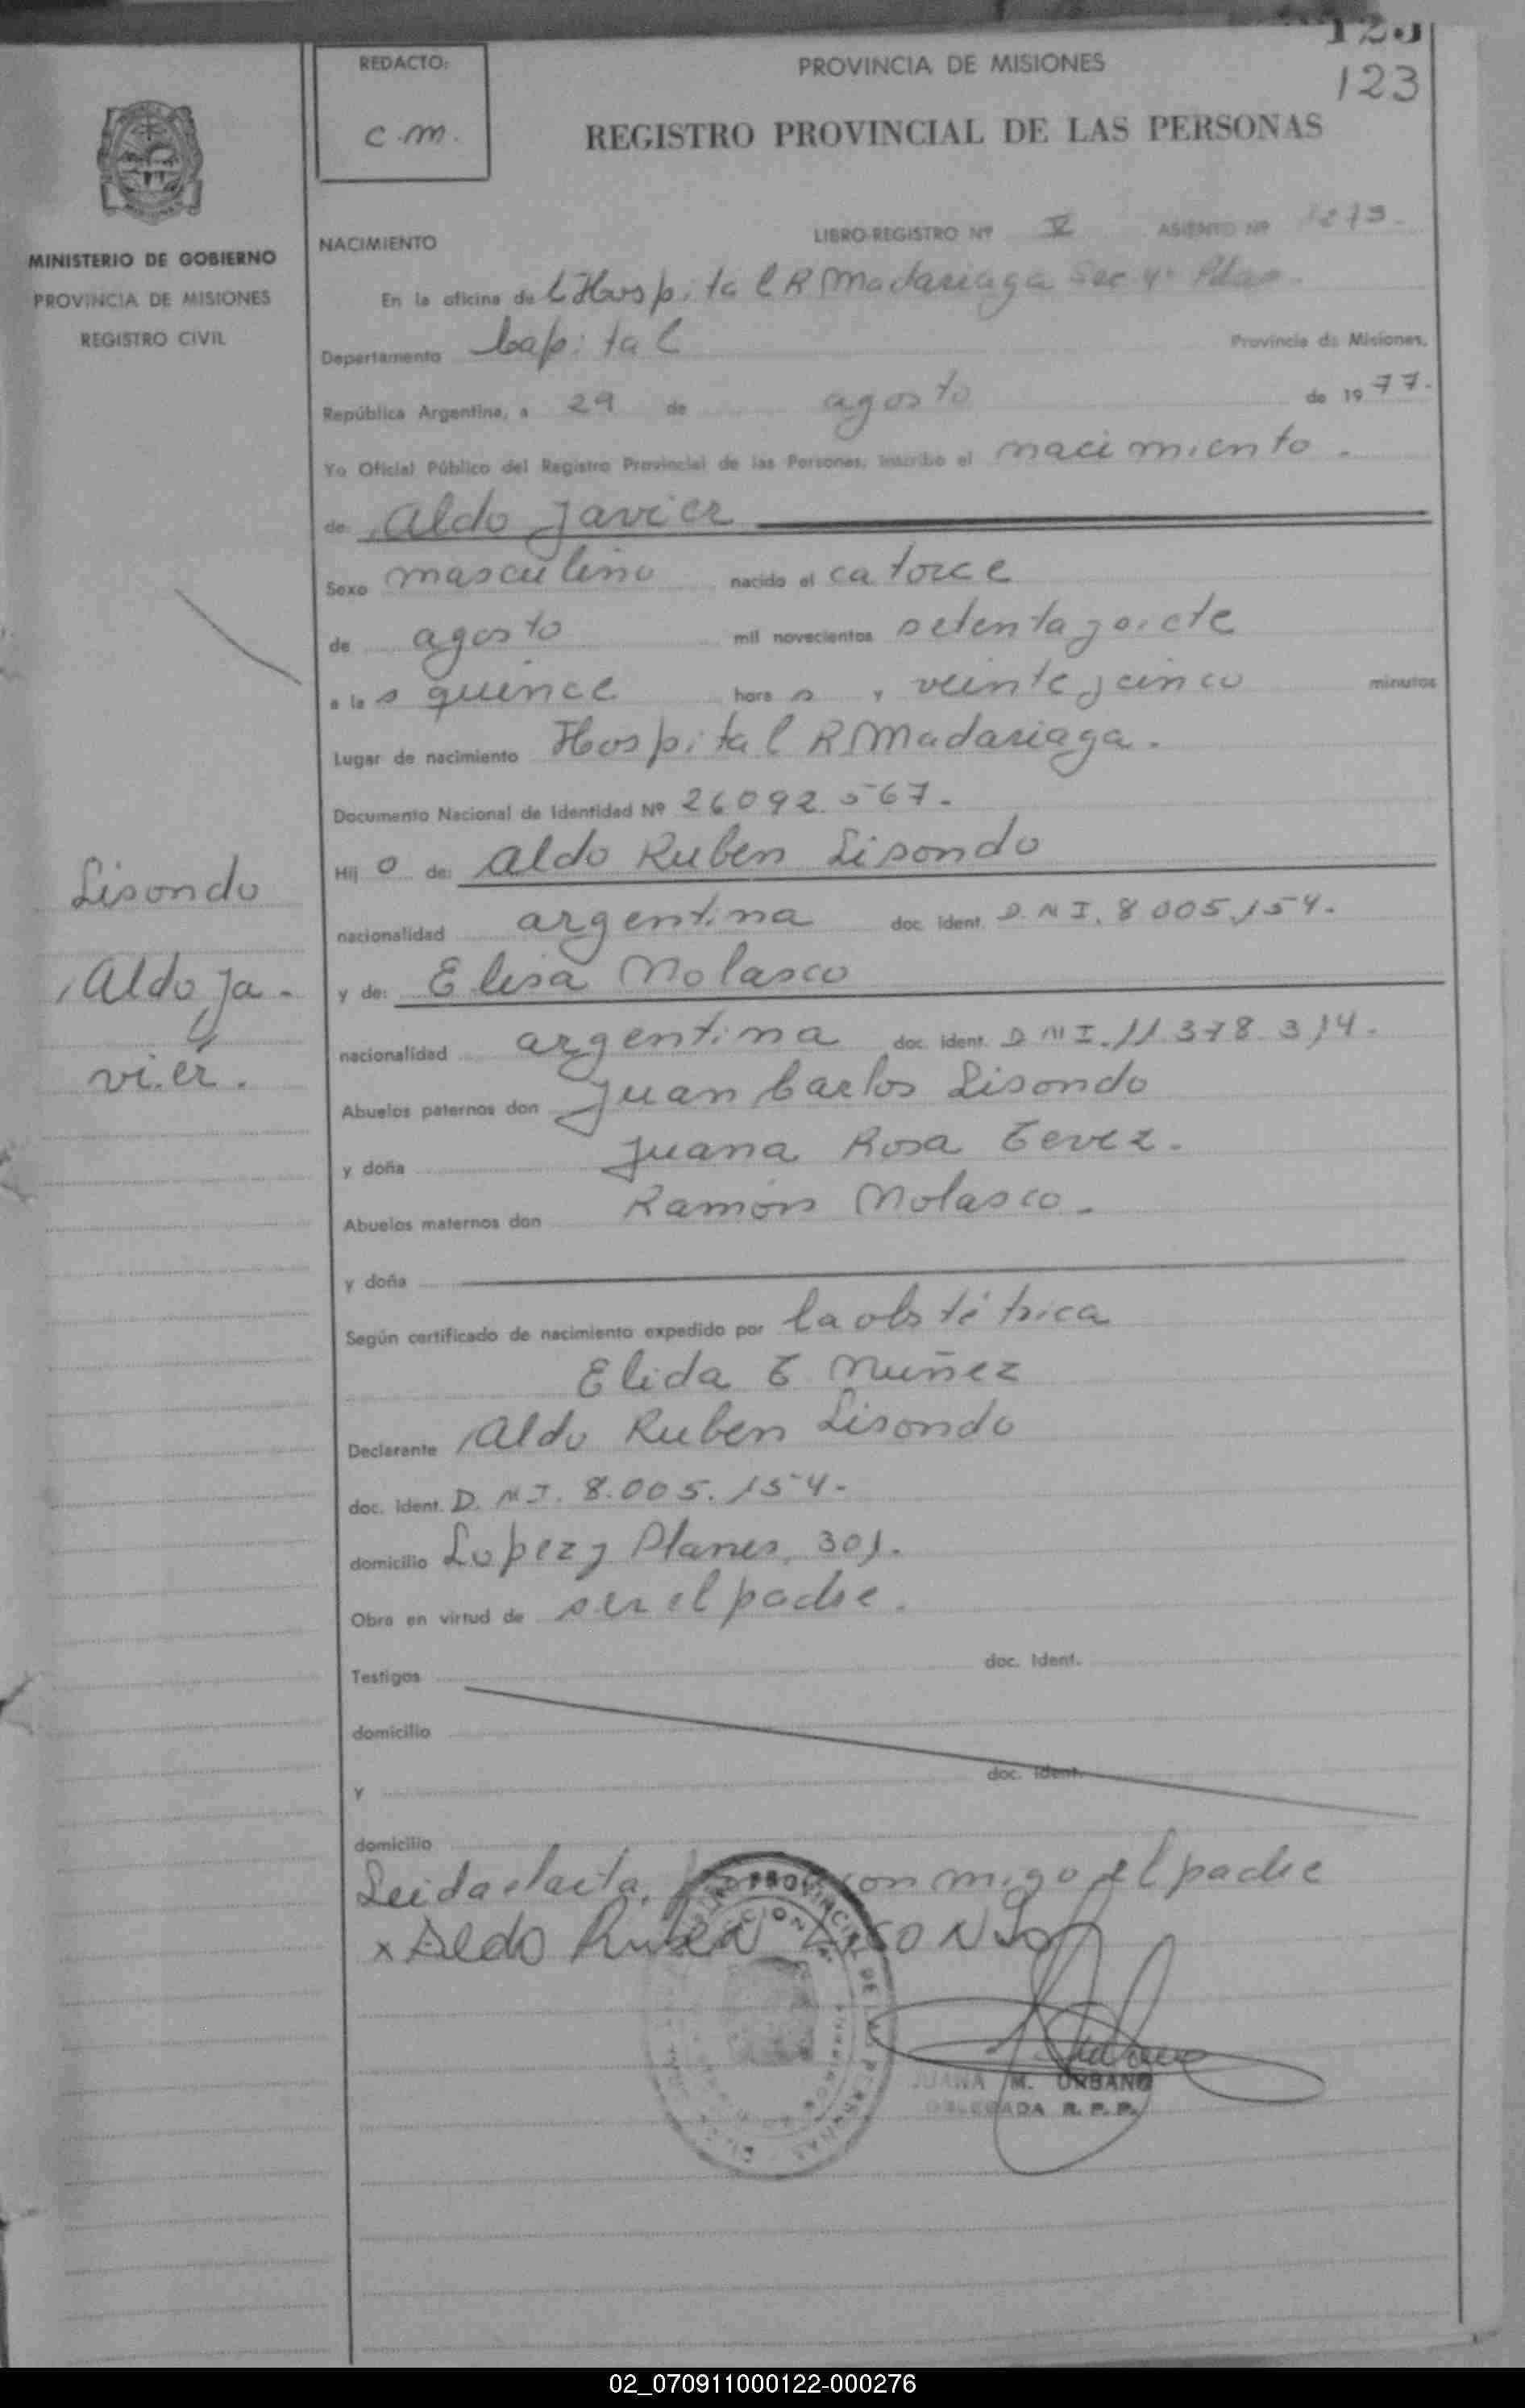 123
123
REDACTO:
c.m.
PROVINCIA DE MISIONES
REGISTRO PROVINCIAL DE LAS PERSONAS
MINISTERIO DE GOBIERNO
PROVINCIA DE MISIONES
REGISTRO CIVIL
NACIMIENTO
LIBRO-REGISTRO Nº V ASIENTO Nº 1273.
En la oficina del Hospital R Madariaga Sec 4ª Pdas.
Departamento Capital Provincia de Misiones.
República Argentina, a 29 de agosto de 1977.
Yo Oficial Público del Registro Provincial de las Personas, inscribo el nacimiento.
de Aldo Javier
Sexo masculino nacido el catorce
de agosto mil novecientos setenta y siete
a las quince horas, veinte y cinco minutos
Lugar de nacimiento Hospital R Madariaga.
Documento Nacional de Identidad Nº 26092.567.
Hijo de: Aldo Ruben Lisondo
nacionalidad argentina doc. ident. D.N I. 8 005.154.
y de: Elisa Nolasco
nacionalidad argentina doc. ident. D NI. 11 378.314.
Abuelos paternos don Juan Carlos Lisondo
y doña Juana Rosa Tevez.
Abuelos maternos don Ramón Nolasco.
y doña
Según certificado de nacimiento expedido por la obstétrica
Elida T Nuñez
Declarante Aldo Ruben Lisondo
doc. ident. D.N.I. 8.005.154.
domicilio Lopez y Planes, 301.
Obra en virtud de ser el padre.
Testigos doc. ident.
domicilio
y doc. ident.
domicilio
Leida el acta, conmigo el padre
x Aldo Ruben LISONDO
JUANA M. URBANO
DELEGADA R. P. P.
Lisondo
Aldo Ja-
vier.
02_070911000122-000276